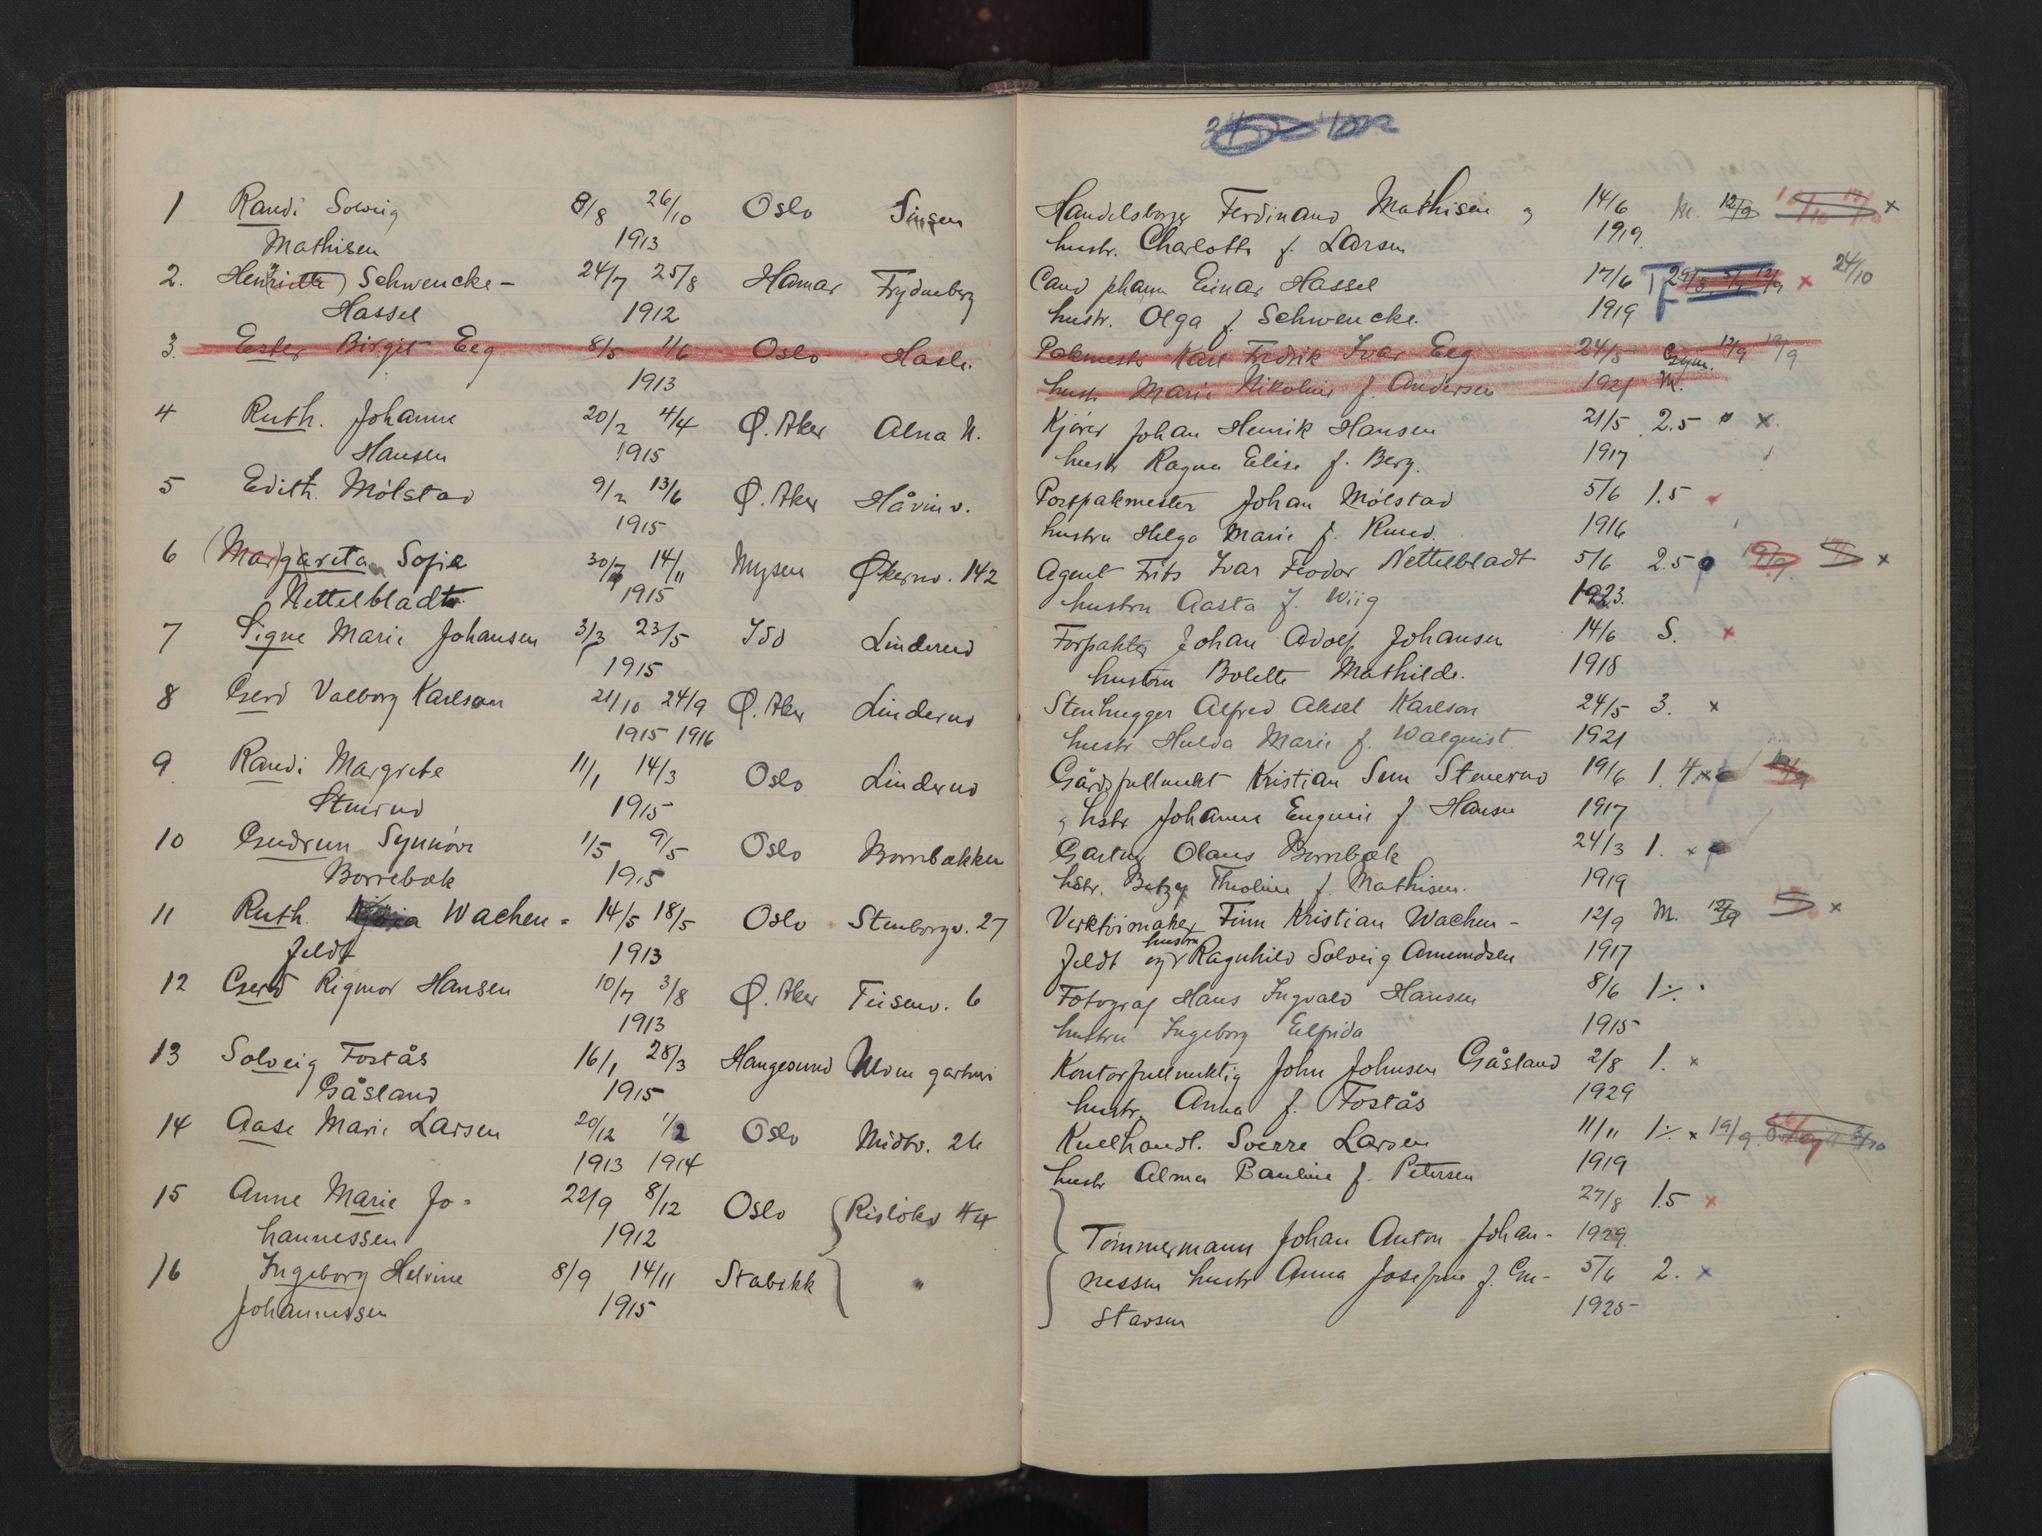 1 Randi Solveig 8/8 26/10 Oslo Sinsen
Mathisen 1913
2. Henriette) Schwencke- 24/7 25/8 Hamar Frydenberg
Hassel 1912
3. Ester Birgit Eeg 8/5 1/6 Oslo Hasle.
1913
4 Ruth. Johanne 20/2 4/4 Ø. Aker Alna
Hansen 1915
5 Edith. Mölstad 9/2 13/6 Ø. Aker Håvinv.
1915
6 (Mar)gareta Sofie 30/7 14/11 Mysen Økernv. 142
Nettelbladt 1915
7 Signe Marie Johansen 3/3 23/5 Idd Linderud
1915
8 Gerd Valborg Karlson 21/10 24/9 Ø. Aker Linderud
1915 1916
9 Randi Margrete 11/1 14/3 Oslo Linderud
Stenerud 1915
10 Gudrun Synnöve 1/5 9/5 Oslo Borrebakken
Borrebæk 1915
11 Ruth. Wachen- 14/5 18/5 Oslo Stenborgv. 27
feldt 1913
12 Gerd Rigmor Hansen 10/7 3/8 Ø. Aker Teisenv. 6
1913
13 Solveig Fostås 16/1 28/3 Haugesund gartneri
Gåsland 1915
14 Aase Marie Larsen 20/12 1/2 Oslo Midtv. 26
1913 1914
15 Anne Marie Jo- 22/9 8/12 Oslo Rislökv 44
hannessen 1912
16 Ingeborg Helvine 8/9 14/11 Stabekk "
Johannessen 1915
Handelsborger Ferdinand Mathisen og 14/6 M. 12/9 x
hustr. Charlotte f. Larsen 1919.
Cand pharm Einar Hassel 17/6 T 29/5 x 24/10
hustr. Olga f. Schwencke. 1919
Pakmester Karl Fredrik Ivar Eeg 24/5 Gym. 12/9 19/9
hustr Marie Nikoline f. Andersen 1921 M.
Kjörer Johan Henrik Hansen 21/5 2.5 x
hustr Ragna Elise f. Berg. 1917
Postpakmester Johan Mölstad 5/6 1.5
hustru Helga Marie f. Ruud. 1916
Agent Frits Ivar Feodor Nettelbladt 5/6 2.5 19/9 x
hustru Aasta f. Wiig 1923.
Forpakter Johan Adolf Johansen 14/6 S. x
hustru Bolette Mathilde. 1918
Stenhugger Alfred Aksel Karlson 24/5 3. x
hustr Hulda Marie f. Walquist 1921
Gårdsfullmekt Kristian Sem Stenerud 19/6 1. 4. x
og hstr Johanne Eugenie f Hansen 1917
Gartner Olaus Borrebæk 24/3 1. x
hstr. Betzy Theoline f. Mathisen. 1919
Verktöimaker Finn Kristian Wachen- 12/9 M. 12/9 x
feldt og hustru Ragnhild Solveig Amundsen 1917
Fotograf Hans Ingvald Hansen 8/6 1
hustru Ingeborg Elfrida 1915
Kontorfullmektig John Johnsen Gåsland 2/8 1. x
hustr. Anna f. Fostås 1929
Kullhandl. Sverre Larsen 11/11 1 x 19/9
hustr Alma Pauline f. Petersen 1919
27/8 1.5 x
Tömmermann Johan Anton Johan- 1929.
nessen hustr Anna Josefine f. Gu- 5/6 2. x
stavsen 1925